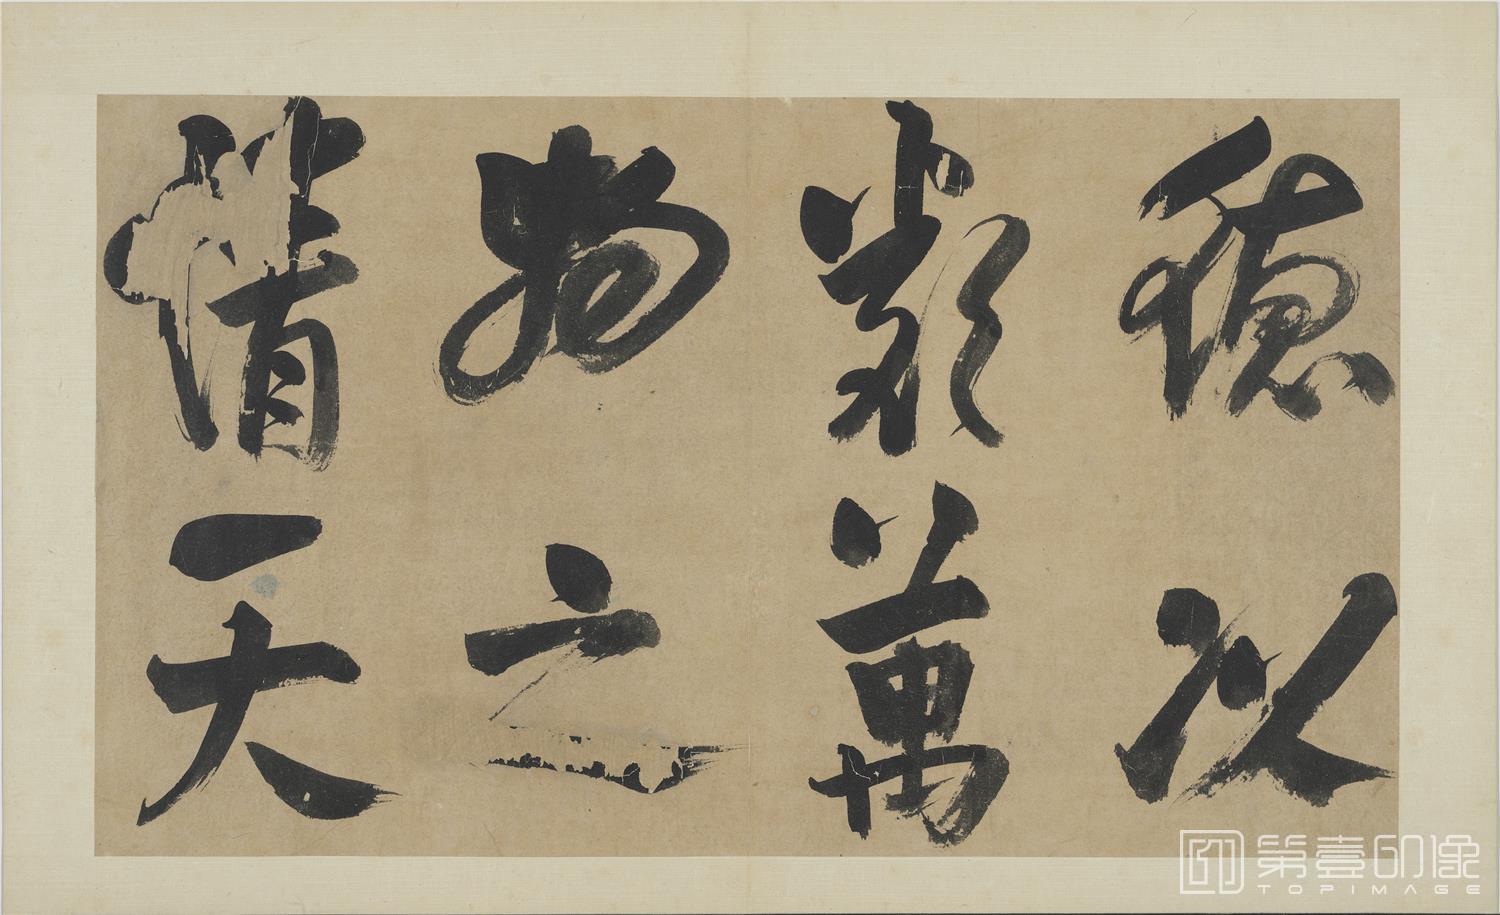 德以
類萬
物之
情天
第壹印像
TOPIMAGE